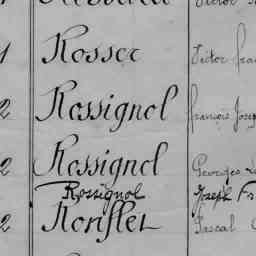 1 Rosser Victor Fra
2 Rossignol François Josep
2 Rossignol Georges
Rossignol Joseph Fr
2 Pascal